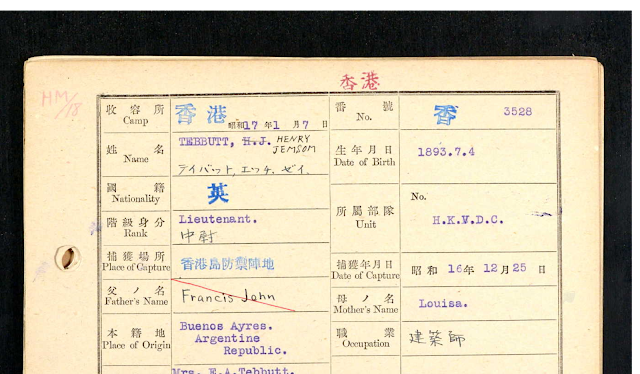 香港
HM/18
收容所 Camp 香港 昭和17年1月7日
番號 No. 香 3528
姓名 Name TEBBUTT, H.J. HENRY JEMSOM
テイバット, エッチ. ゼイ.
生年月日 Date of Birth 1893.7.4
國籍 Nationality 英
所屬部隊 Unit No. H.K.V.D.C.
階級身分 Rank Lieutenant.
中尉
捕獲場所 Place of Capture 香港島防禦陣地
捕獲年月日 Date of Capture 昭和16年12月25日
父ノ名 Father's Name Francis John
母ノ名 Mother's Name Louisa.
本籍地 Place of Origin Buenos Ayres.
Argentine
Republic.
職業 Occupation 建築師
Mrs. E.A.Tebbutt.